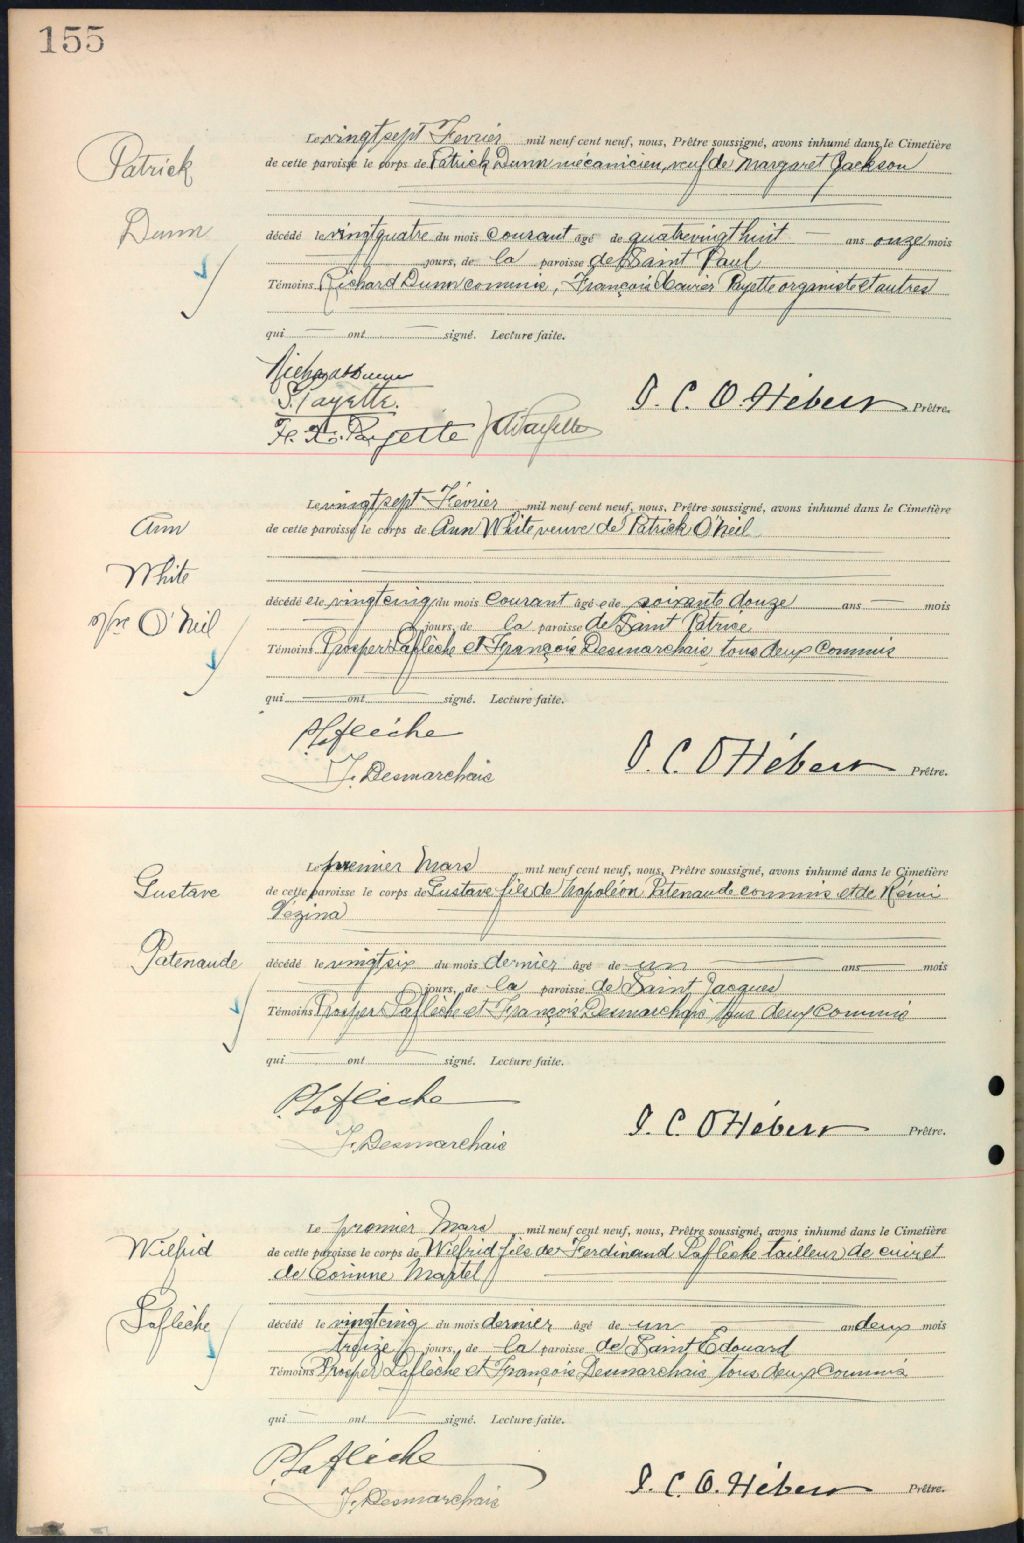 155
Patrick
Dunn
Le vingt sept Fevrier mil neuf cent neuf, nous, Prêtre soussigné, avons inhumé dans le Cimetière
de cette paroisse le corps de Patrick Dunn mécanicien, veuf de Margaret Jackson
décédé le vingt quatre du mois courant âgé de quatre vingt huit — ans onze mois
jours, de la paroisse de Saint Paul
Témoins Richard Dunn commis, François Xavier Payette organiste et autres
qui — ont — signé. Lecture faite.
Richard Dunn
Payette.
F. X. Payette
Payette
J. C. O. Hébert Prêtre.
Ann
White
Vve O'Neil
Le vingt sept Février mil neuf cent neuf, nous, Prêtre soussigné, avons inhumé dans le Cimetière
de cette paroisse le corps de Ann White veuve de Patrick O'Neil
décédée le vingt cinq du mois courant âgée de soixante douze ans — mois
— jours, de la paroisse de Saint Patrice
Témoins Prosper Laflèche et François Desmarchais tous deux commis
qui — ont — signé. Lecture faite.
P. Laflèche
F. Desmarchais
J. C. O Hébert Prêtre.
Gustave
Patenaude
Le premier Mars mil neuf cent neuf, nous, Prêtre soussigné, avons inhumé dans le Cimetière
de cette paroisse le corps de Gustave fils de Napoléon Patenaude commis et de Rémi
Vézina
décédé le vingt six du mois dernier âgé de un — ans — mois
— jours, de la paroisse de Saint Jacques
Témoins Prosper Laflèche et François Desmarchais tous deux commis
qui — ont — signé. Lecture faite.
P. Laflèche
F. Desmarchais
J. C. O Hébert Prêtre.
Wilfrid
Laflèche
Le premier Mars mil neuf cent neuf, nous, Prêtre soussigné, avons inhumé dans le Cimetière
de cette paroisse le corps de Wilfrid fils de Ferdinand Laflèche tailleur de cuir et
de Corinne Martel
décédé le vingt cinq du mois dernier âgé de un — an deux mois
treize jours, de la paroisse de Saint Edouard
Témoins Prosper Laflèche et François Desmarchais tous deux commis
qui — ont — signé. Lecture faite.
P. Laflèche
F. Desmarchais
J. C. O. Hébert Prêtre.